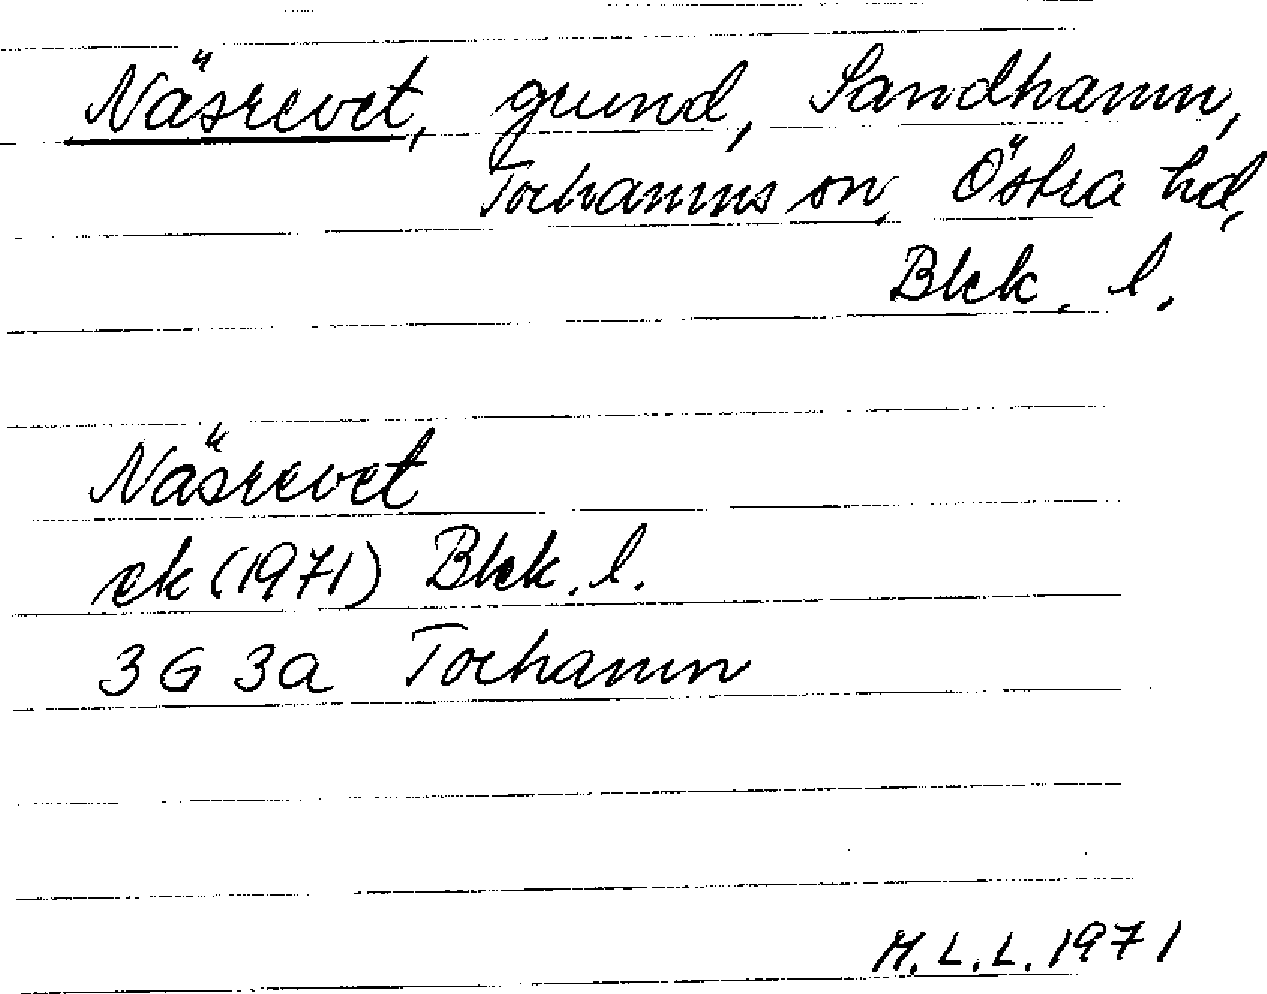 Näsrevet, grund, Sandhamn,
Torhamns sn, Östra hd,
Blek. l.
Näsrevet
ek (1971) Blek. l.
3G 3a Torhamn
M.L.L. 1971